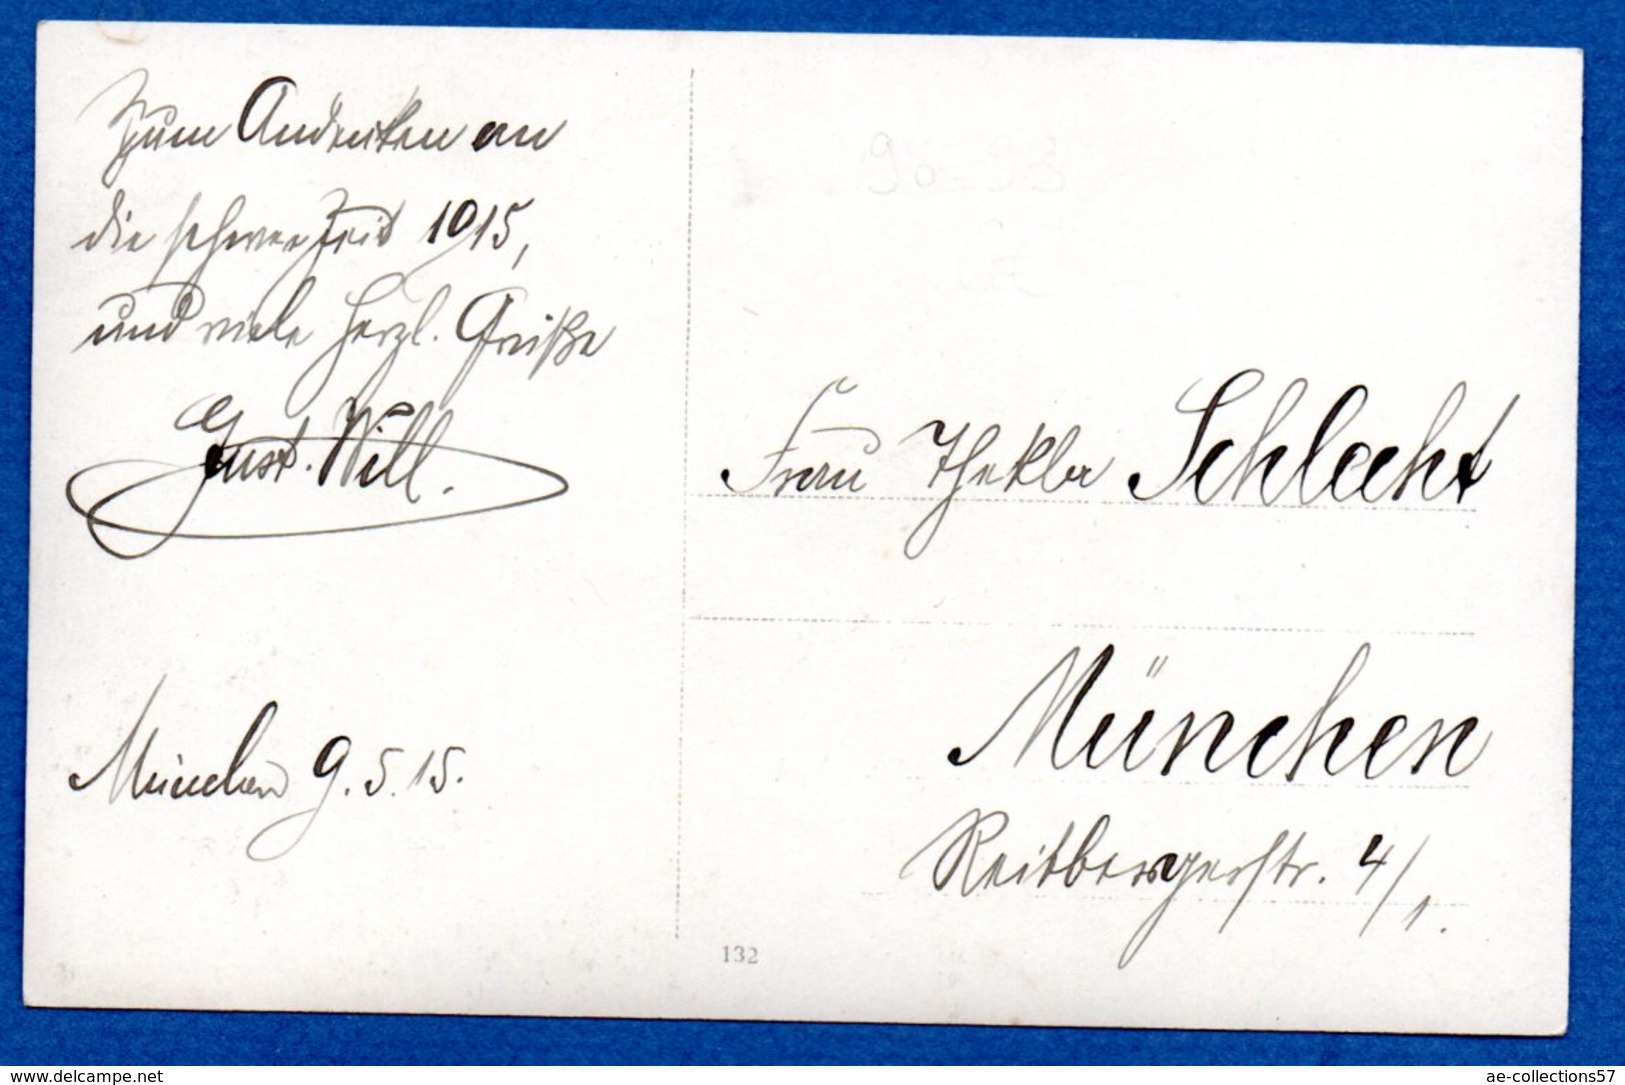 Zum Andenken an
die schwere Zeit 1915,
und viele herzl. Grüße
Gust. Will.
München 9.5.15.
Frau Thekla Schlecht
München
Reitbergerstr. 4/1.
132
www.delcampe.net
ae-collections57